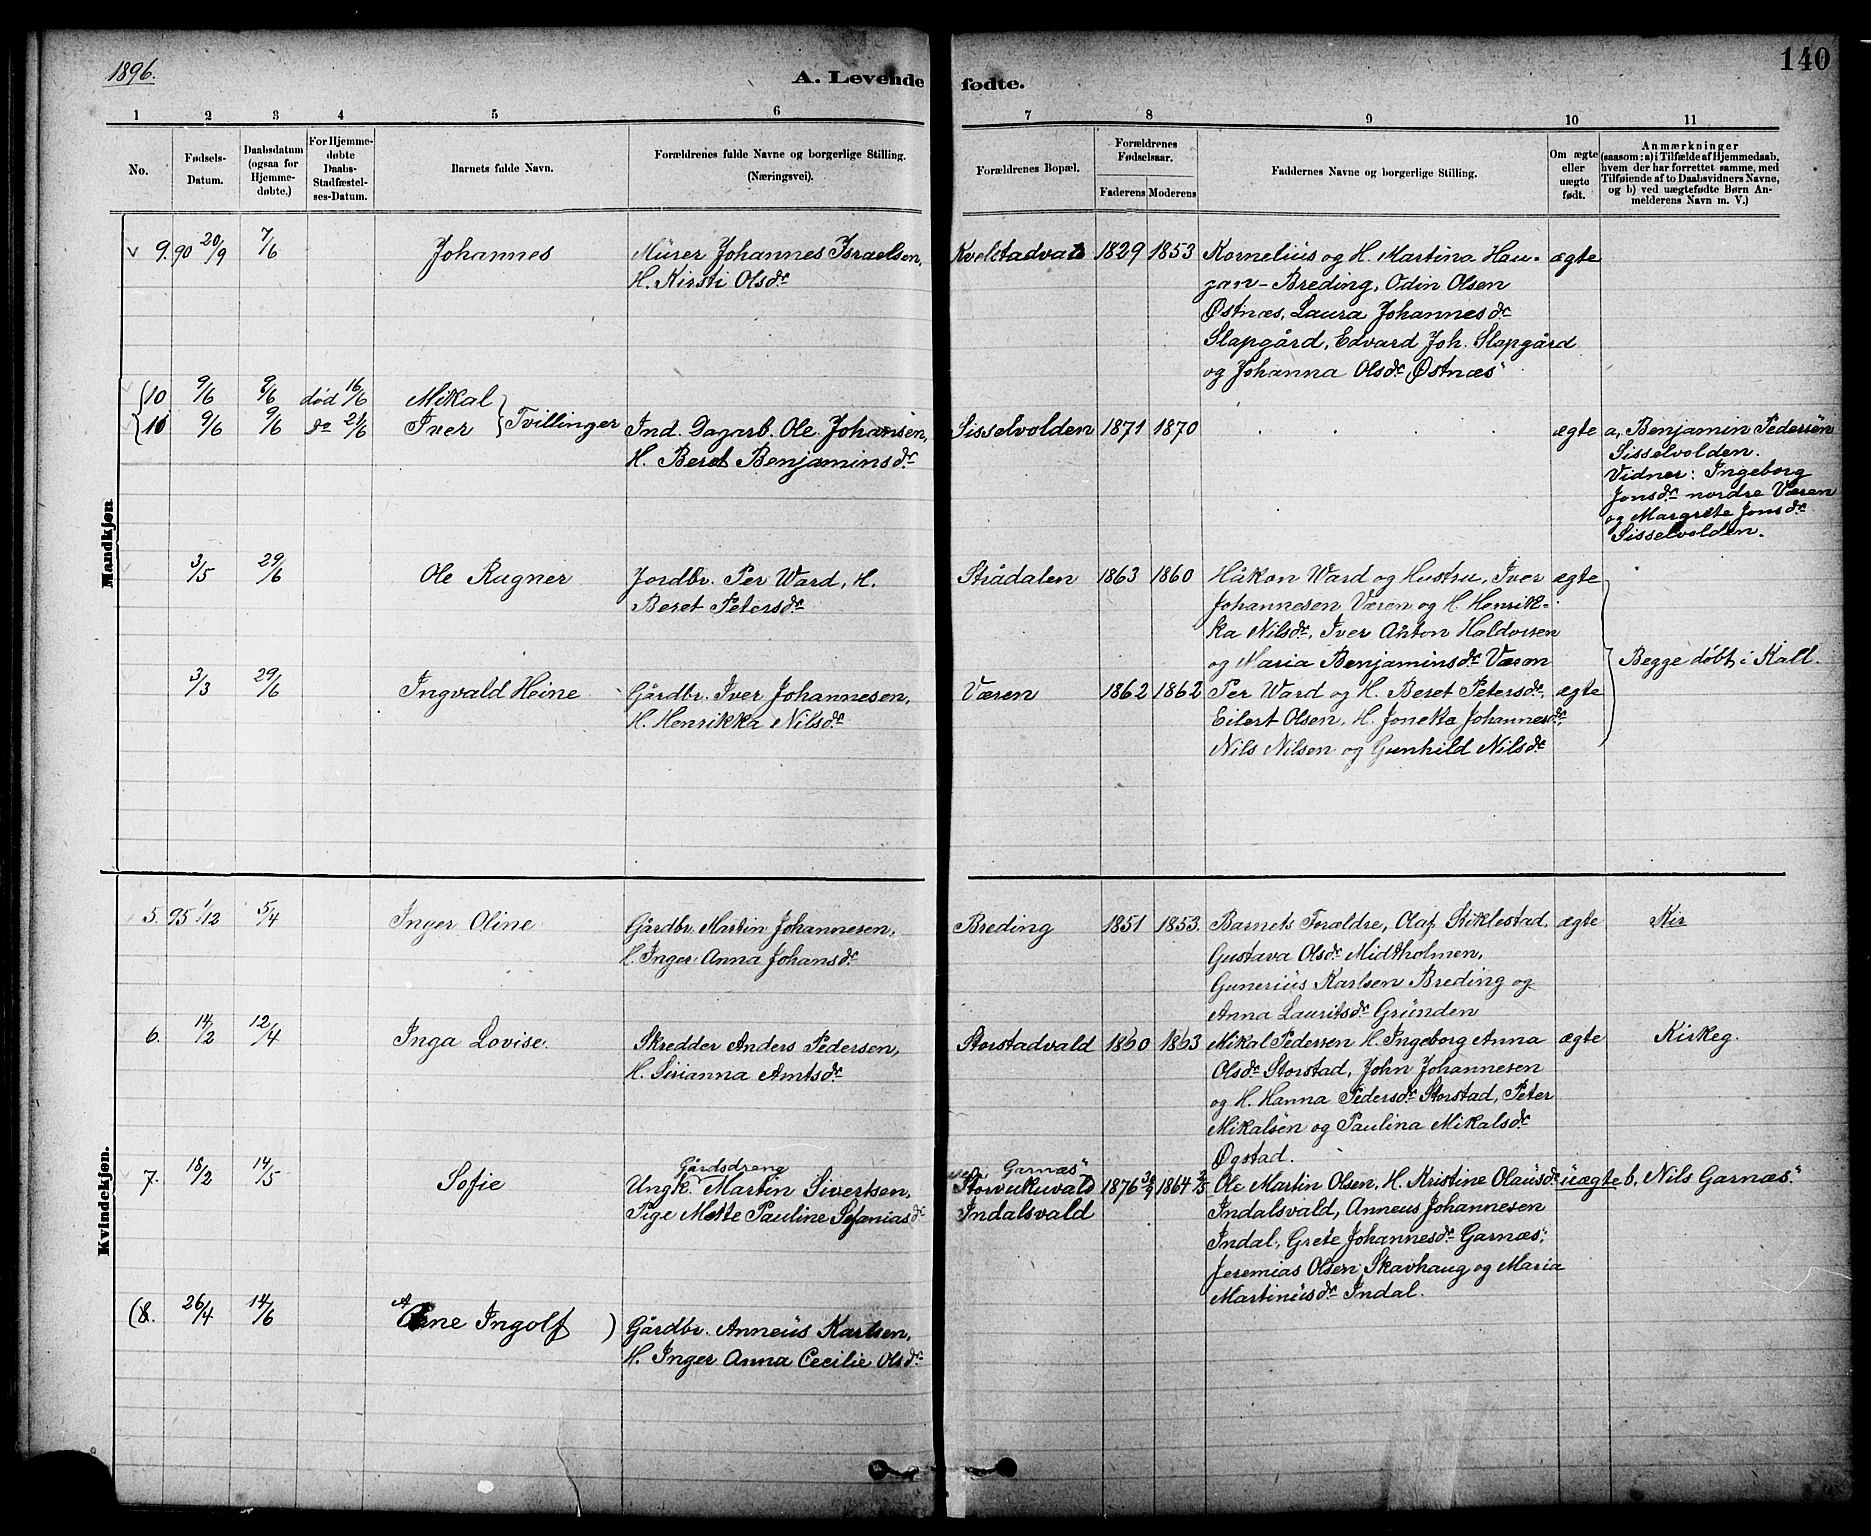 1896.
A. Levende fødte.
140
1 2 3 4 5 6 7 8 9 10 11
No.
Fødsels-Datum.
Daabsdatum (ogsaa for Hjemmedøbte.)
For Hjemmedøbte Daabs-Stadfæstelses-Datum.
Barnets fulde Navn.
Forældrenes fulde Navne og borgerlige Stilling. (Næringsvei).
Forældrenes Bopæl.
Forældrenes Fødselsaar.
Faderens Moderens
Faddernes Navne og borgerlige Stilling.
Om ægte eller uægte født.
Anmærkninger (saasom: a) i Tilfælde af Hjemmedaab, hvem der har forrettet samme, med Tilføiende af to Daabsvidners Navne, og b) ved uægtefødte Børn Anmelderens Navn m. V.)
Mandkjøn
v 9. 90 20/9 7/6 Johannes Murer Johannes Israelsen, Kvelstadvald 1829 1853 Kornelius og H. Martina Hau- ægte
H. Kirsti Olsdr. gan-Breding, Odin Olsen
Østnæs, Laura Johannesdr.
Slapgård, Edvard Joh. Slapgård
og Johanna Olsdr. Østnæs
10 9/6 9/6 død 16/6 Mikal
11 9/6 9/6 do 21/6 Iver } Tvillinger Ind. Dagarb. Ole Johansen, Sisselvolden 1871 1870 . . . . ægte a, Benjamin Pedersen
H. Beret Benjaminsdr. Sisselvolden.
Vidner: Ingeborg
Jonsdr. nordre Væren
og Margrete Jonsdr.
Sisselvolden.
3/5 29/6 Ole Ragner Jordbr. Per Ward, H. Strådalen 1863 1860 Håkon Ward og Hustru, Iver ægte
Beret Petersdr. Johannesen Væren og H. Henrik-
ka Nilsdr., Iver Anton Haldorsen
og Maria Benjaminsdr. Væren
Begge døbt i Kall.
3/3 29/6 Ingvald Heine Gårdbr. Iver Johannesen, Væren 1862 1862 Per Ward og H. Beret Petersdr. ægte
H. Henrikka Nilsdr. Eilert Olsen, H. Jonetta Johannesdr.
Nils Nilsen og Gunhild Nilsdr.
Kvindekjøn.
5. 95 1/12 5/4 Inger Oline Gårdbr. Martin Johannesen, Breding 1851 1853. Barnets Forældre, Olaf Stiklestad, ægte Kir
H. Inger Anna Johansdr. Gustava Olsdr. Midtholmen,
Gunerius Karlsen Breding og
Anna Lauritsdr. Grunden
6. 14/2 12/4 Inga Lovise. Skredder Anders Pedersen, Storstadvald 1860 1863 Mikal Pedersen H. Ingeborg Anna ægte Kirkeg.
H. Sirianna Arntsdr. Olsdr. Storstad, John Johannesen
og H. Hanna Pedersdr. Storstad, Peter
Mikalsen og Paulina Mikalsdr.
Øgstad.
Gårdsdreng Garnæs
7. 18/2 14/5 Sofie Ungk. Martin Sivertsen, Storvukuvald 1876 1864 Ole Martin Olsen, H. Kristine Olausdr. uægte b, Nils Garnæs.
Pige Mette Pauline Sefaniasdr. Indalsvald Indalsvald, Anneus Johannesen
Indal, Grete Johannesdr. Garnæs,
Jeremias Olsen Skavhaug og Maria
Martinusdr. Indal.
(8. 26/4 14/6 Arne Ingolf ) Gårdbr. Anneus Karlsen,
H. Inger Anna Cecilie Olsdr.